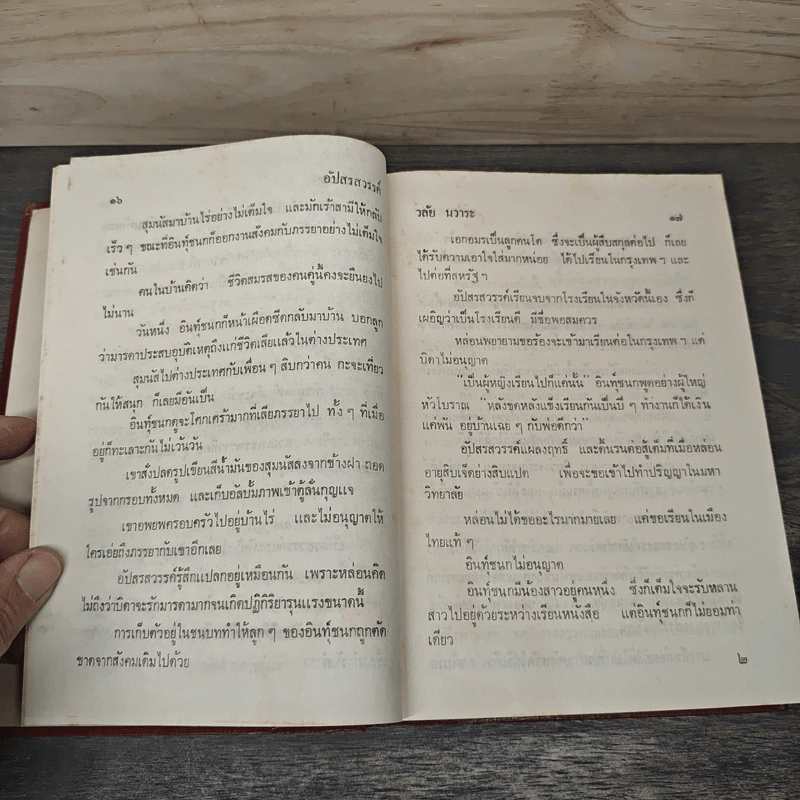 อัปสรสวรรค์
๑๖
สุมนัสมาบ้านไร่อย่างไม่เต็มใจ และมักเร้าสามีให้กลับ
เร็ว ๆ ขณะที่อินทุ์ชนกก็ออกงานสังคมกับภรรยาอย่างไม่เต็มใจ
เช่นกัน
คนในบ้านคิดว่า ชีวิตสมรสของคนคู่นี้คงจะยืนยงไป
ไม่นาน
วันหนึ่ง อินทุ์ชนกก็หน้าเผือดซีดกลับมาบ้าน บอกลูก
ว่ามารดาประสบอุบัติเหตุถึงแก่ชีวิตเสียแล้วในต่างประเทศ
สุมนัสไปต่างประเทศกับเพื่อน ๆ สิบกว่าคน กะจะเที่ยว
กันให้สนุก ก็เลยมีอันเป็น
อินทุ์ชนกดูจะโศกเศร้ามากที่เสียภรรยาไป ทั้ง ๆ ที่เมื่อ
อยู่ก็ทะเลาะกันไม่เว้นวัน
เขาสั่งปลดรูปเขียนสีน้ำมันของสุมนัสลงจากข้างฝา ถอด
รูปจากกรอบทั้งหมด และเก็บอัลบั้มภาพเข้าตู้ลั่นกุญแจ
เขาอพยพครอบครัวไปอยู่บ้านไร่ และไม่อนุญาตให้
ใครเอ่ยถึงภรรยากับเขาอีกเลย
อัปสรสวรรค์รู้สึกแปลกอยู่เหมือนกัน เพราะหล่อนคิด
ไม่ถึงว่าบิดาจะรักมารดามากจนเกิดปฏิกิริยารุนแรงขนาดนี้
การเก็บตัวอยู่ในชนบททำให้ลูก ๆ ของอินทุ์ชนกถูกตัด
ขาดจากสังคมเดิมไปด้วย
วลัย นวาระ
๑๗
เอกอมรเป็นลูกคนโต ซึ่งจะเป็นผู้สืบสกุลต่อไป ก็เลย
ได้รับความเอาใจใส่มากหน่อย ได้ไปเรียนในกรุงเทพ ฯ และ
ไปต่อที่สหรัฐ ฯ
อัปสรสวรรค์เรียนจบจากโรงเรียนในจังหวัดนี้เอง ซึ่งก็
เผอิญว่าเป็นโรงเรียนดี มีชื่อพอสมควร
หล่อนพยายามขอร้องจะเข้ามาเรียนต่อในกรุงเทพ ฯ แต่
บิดาไม่อนุญาต
“เป็นผู้หญิงเรียนไปก็แค่นั้น” อินทุ์ชนกพูดอย่างผู้ใหญ่
หัวโบราณ “หลังขดหลังแข็งเรียนกันเป็นปี ๆ ทำงานก็ได้เงิน
แค่พัน อยู่บ้านเฉย ๆ กับพ่อดีกว่า”
อัปสรสวรรค์แผลงฤทธิ์ และดิ้นรนต่อสู้เต็มที่เมื่อหล่อน
อายุสิบเจ็ดย่างสิบแปด เพื่อจะขอเข้าไปทำปริญญาในมหา
วิทยาลัย
หล่อนไม่ได้ขออะไรมากมายเลย แค่ขอเรียนในเมือง
ไทยแท้ ๆ
อินทุ์ชนกไม่อนุญาต
อินทุ์ชนกมีน้องสาวอยู่คนหนึ่ง ซึ่งก็เต็มใจจะรับหลาน
สาวไปอยู่ด้วยระหว่างเรียนหนังสือ แต่อินทุ์ชนกก็ไม่ยอมท่า
เดียว
๒